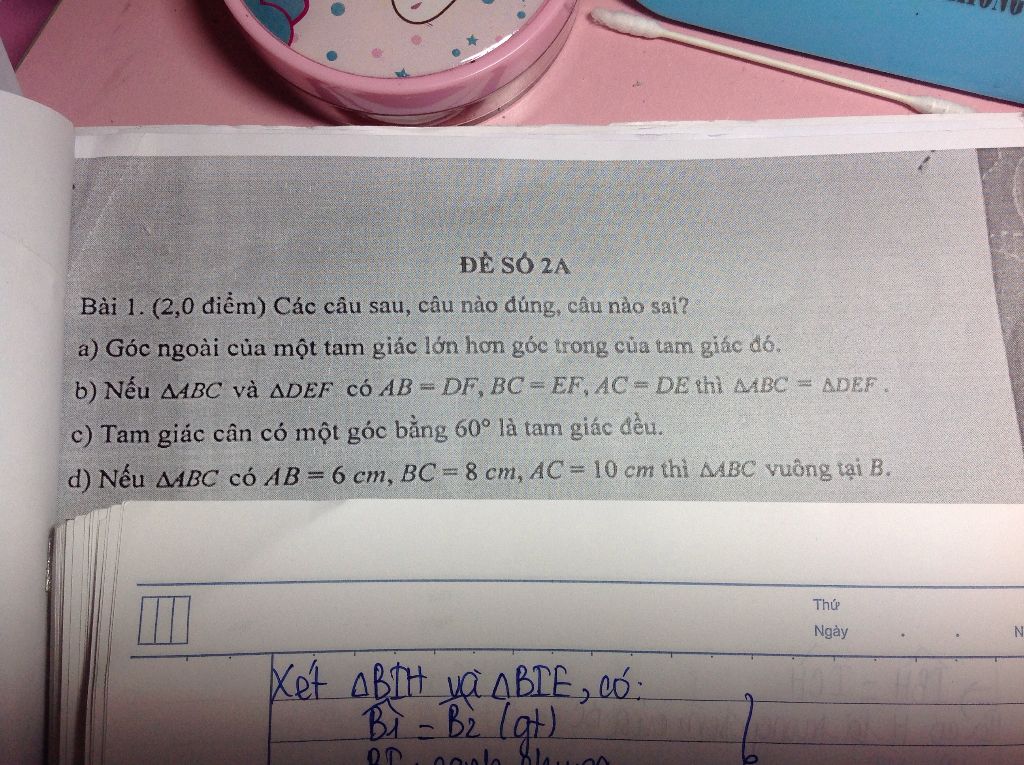 ĐỀ SỐ 2A
Bài 1. (2,0 điểm) Các câu sau, câu nào đúng, câu nào sai?
a) Góc ngoài của một tam giác lớn hơn góc trong của tam giác đó.
b) Nếu ΔABC và ΔDEF có AB = DF, BC = EF, AC = DE thì ΔABC = ΔDEF .
c) Tam giác cân có một góc bằng 60° là tam giác đều.
d) Nếu ΔABC có AB = 6 cm, BC = 8 cm, AC = 10 cm thì ΔABC vuông tại B.
Thứ
Ngày . .
Xét ΔBIH và ΔBIE, có:
B̂1 = B̂2 (gt)